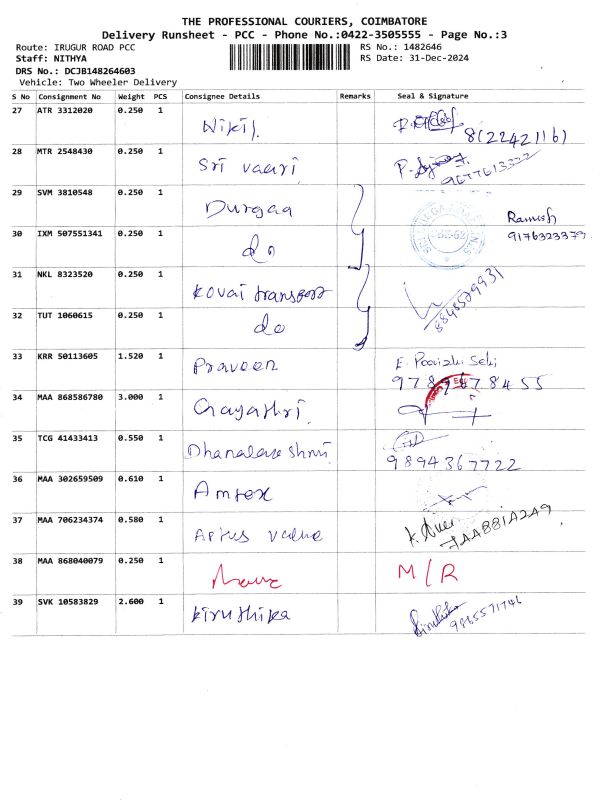 THE PROFESSIONAL COURIERS, COIMBATORE
Delivery Runsheet - PCC - Phone No.:0422-3505555 - Page No.:3
Route: IRUGUR ROAD PCC RS No.: 1482646
Staff: NITHYA RS Date: 31-Dec-2024
DRS No.: DCJB148264603
Vehicle: Two Wheeler Delivery
S No Consignment No Weight PCS Consignee Details Remarks Seal & Signature
27 ATR 3312020 0.250 1 Nikil 8(2242116)
28 MTR 2548430 0.250 1 Sri vaari
29 SVM 3810548 0.250 1 Durgaa Ramesh
30 IXM 507551341 0.250 1 do 9176323379
31 NKL 8323520 0.250 1 kovai transport
32 TUT 1060615 0.250 1 do
33 KRR 50113605 1.520 1 Praveen
34 MAA 868586780 3.000 1 Gayathri
35 TCG 41433413 0.550 1 Dhanalakshmi 9894367722
36 MAA 302659509 0.610 1 Amtex
37 MAA 706234374 0.580 1
38 MAA 868040079 0.250 1 M/R
39 SVK 10583829 2.600 1 kiruthika 9865571746